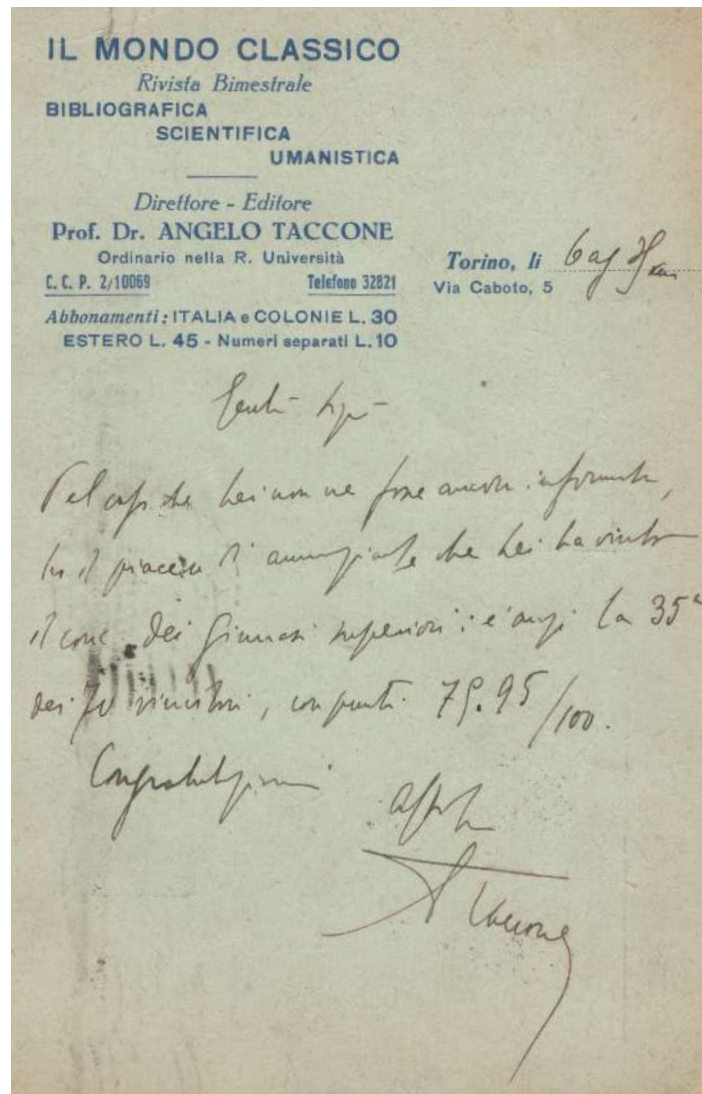 IL MONDO CLASSICO
Rivista Bimestrale
BIBLIOGRAFICA
SCIENTIFICA
UMANISTICA
Direttore - Editore
Prof. Dr. ANGELO TACCONE
Ordinario nella R. Università
C. C. P. 2/10069 Telefono 32821
Abbonamenti: ITALIA e COLONIE L. 30
ESTERO L. 45 - Numeri separati L. 10
Torino, li 6 ag
Via Caboto, 5
Pel caso che Lei non ne fosse ancora informata,
ho il piacere d'annunziarle che Lei ha vinto
il conc. dei Ginnasi superiori: è anzi la 35ª
dei 70 vincitori, con punti 79.95/100.
Congratulazioni
A Taccone